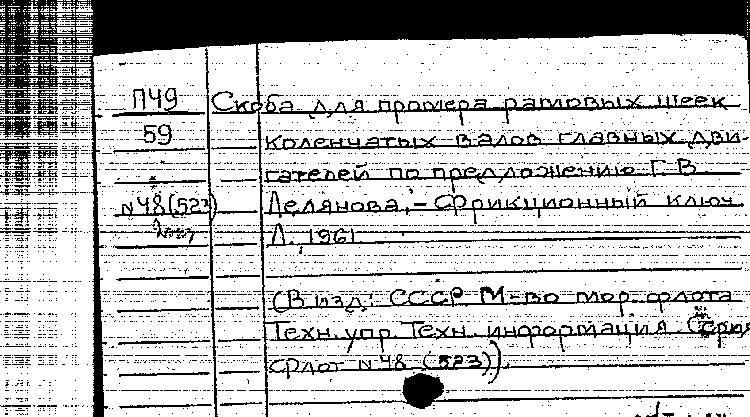 П49 Скоба для промера рамовых шеек
59 коленчатых валов главных дви-
гателей по предложению Г.В.
N48(523) Делянова, - Фрикционный ключ
Л., 1961
(В изд: СССР. М-во мор. флота
Техн. упр. Техн. информация
флот N48 (523)).